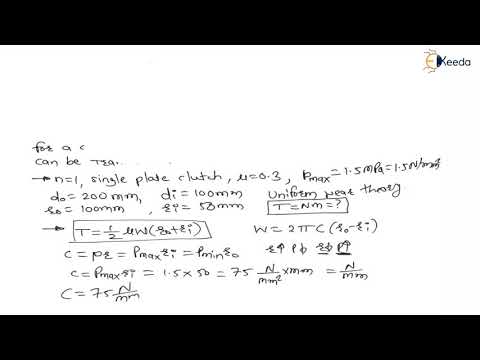 Keeda
for a c
can be tra
→ n=1, single plate clutch, μ=0.3, Pmax=1.5MPa=1.5N/mm²
do=200mm, di=100mm Uniform wear theory
r₀=100mm, ri=50mm T=Nm=?
→ T=½ μW(r₀+ri) W=2πC(r₀-ri)
C = pr = Pmax ri = Pmin r₀ r↑ P↓ r↓ P↑
C = Pmax ri = 1.5 × 50 = 75 N/mm² × mm = N/mm
C = 75 N/mm